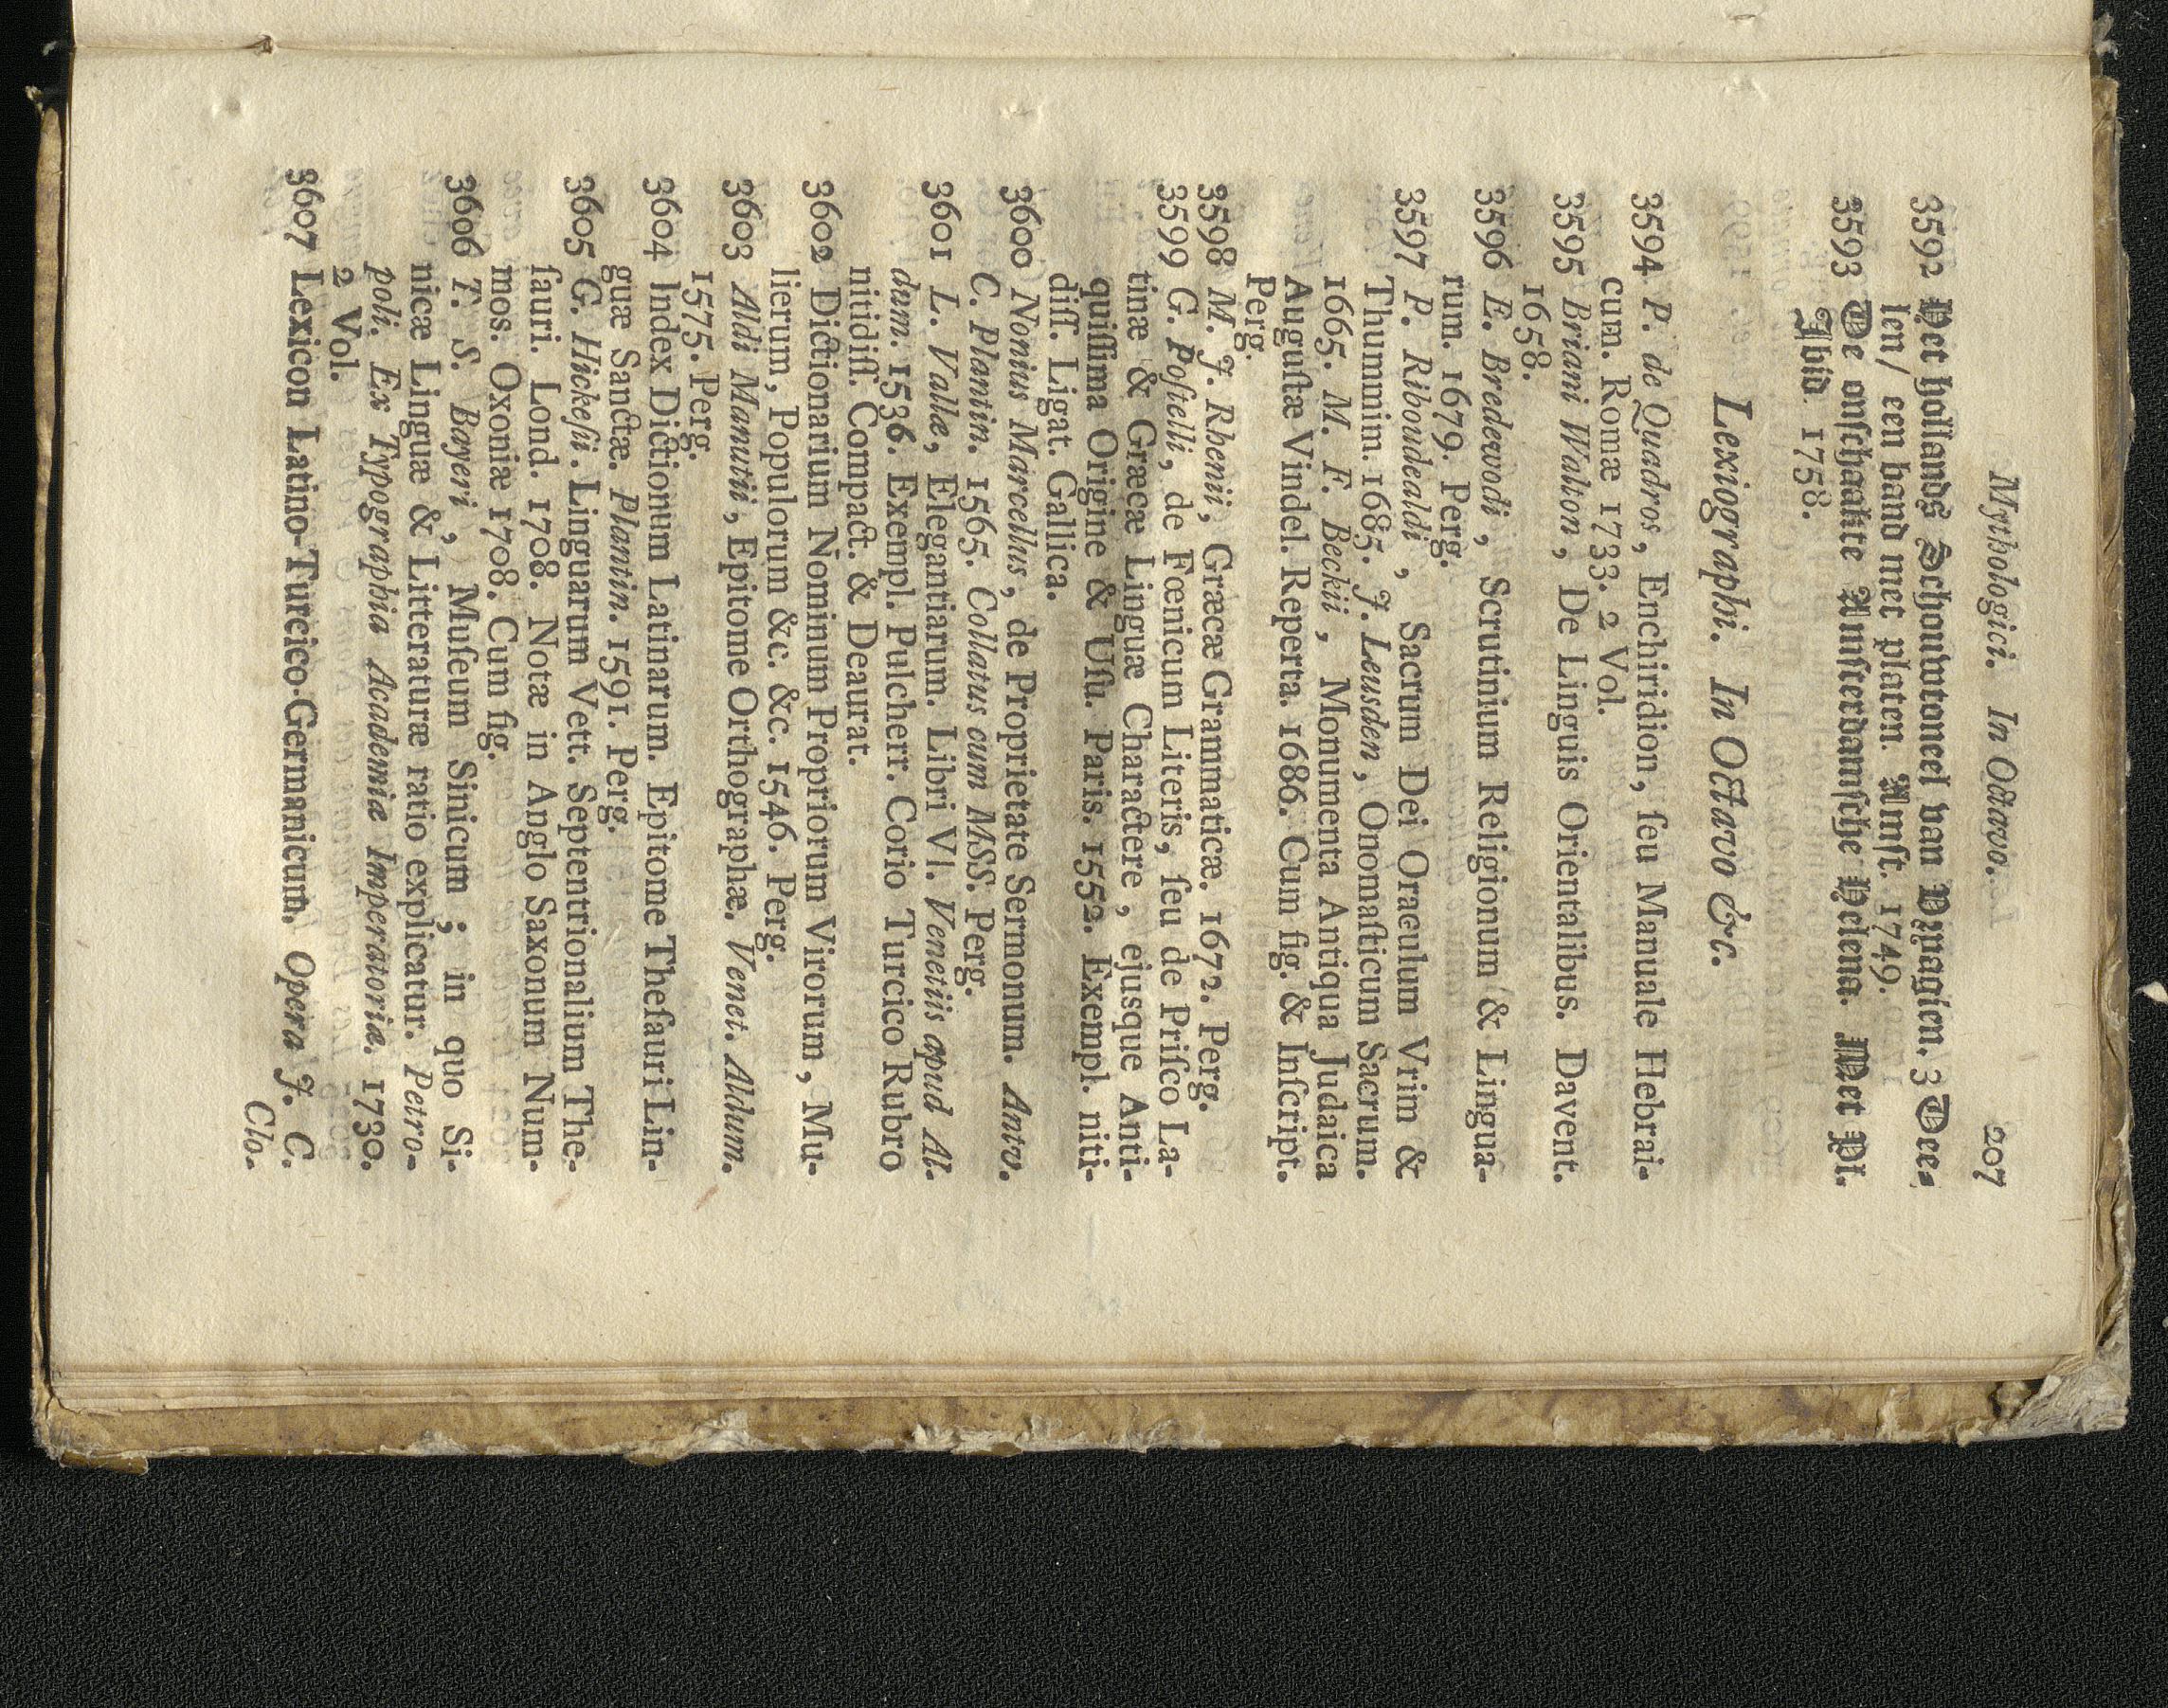 Mythologici. In Octavo. 207
3592 Het hollands Schouwtoneel van Wynagien. 3 Dee-
len / een band met platen. Amst. 1749.
3593 De onschaakte Amsterdamsche Helena. Met Pl.
Ibid. 1758.
Lexiographi. In Octavo &c.
3594 P. de Quadros, Enchiridion, ſeu Manuale Hebrai-
cum. Romæ 1733. 2 Vol.
3595 Briani Walton, De Linguis Orientalibus. Davent.
1658.
3596 E. Bredewodi, Scrutinium Religionum & Lingua-
rum. 1679. Perg.
3597 P. Riboudealdi, Sacrum Dei Oraculum Vrim &
Thummim. 1685. J. Leusden, Onomaſticum Sacrum.
1665. M. F. Beckii, Monumenta Antiqua Judaica
Auguſtæ Vindel. Reperta. 1686. Cum fig. & Inſcript.
Perg.
3598 M. J. Rhenii, Græcæ Grammaticæ. 1672. Perg.
3599 G. Poſtelli, de Fœnicum Literis, ſeu de Priſco La-
tinæ & Græcæ Linguæ Charactere, ejusque Anti-
quiſſima Origine & Uſu. Paris. 1552. Exempl. niti-
diſſ. Ligat. Gallica.
3600 Nonius Marcellus, de Proprietate Sermonum. Antv.
C. Plantin. 1565. Collatus cum MSS. Perg.
3601 L. Vallæ, Elegantiarum. Libri VI. Venetiis apud Al-
dum. 1536. Exempl. Pulcherr. Corio Turcico Rubro
nitidiſſ. Compact. & Deaurat.
3602 Dictionarium Nominum Propriorum Virorum, Mu-
lierum, Populorum &c. &c. 1546. Perg.
3603 Aldi Manutii, Epitome Orthographæ. Venet. Aldum.
1575. Perg.
3604 Index Dictionum Latinarum. Epitome Theſauri Lin-
guæ Sanctæ. Plantin. 1591. Perg.
3605 G. Hickeſii. Linguarum Vett. Septentrionalium The-
ſauri. Lond. 1708. Notæ in Anglo Saxonum Num-
mos. Oxoniæ 1708. Cum fig.
3606 T. S. Bayeri, Muſeum Sinicum; in quo Si-
nicæ Linguæ & Litteraturæ ratio explicatur. Petro-
poli. Ex Typographia Academiæ Imperatoriæ. 1730.
2 Vol.
3607 Lexicon Latino-Turcico-Germanicum. Opera J. C.
Clo-